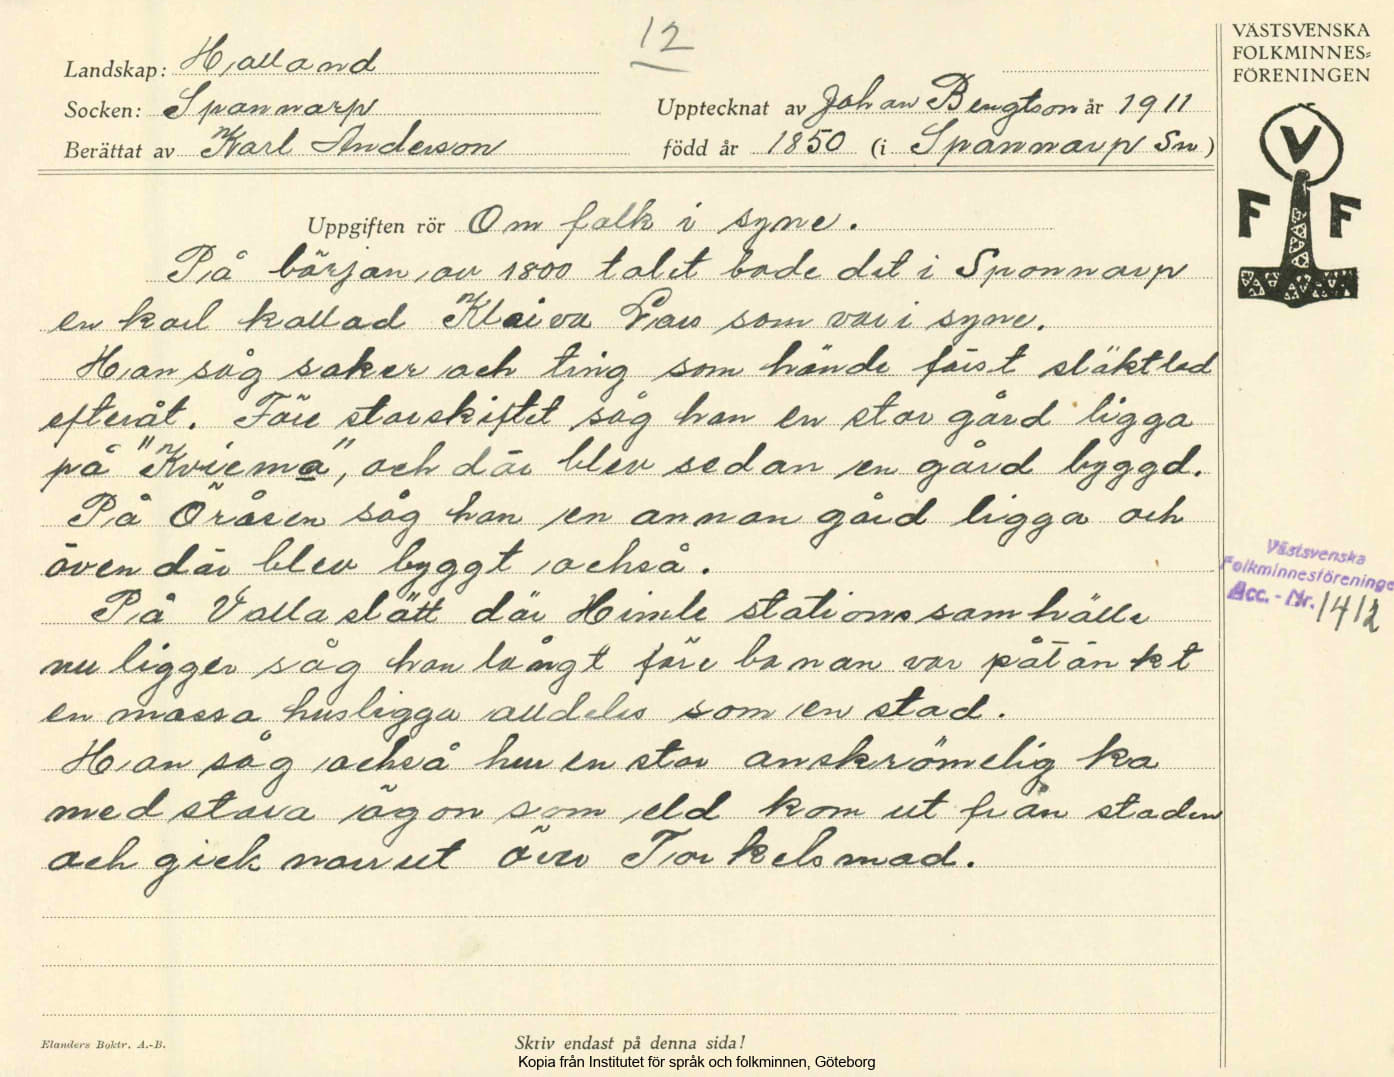 12
VÄSTSVENSKA
FOLKMINNES=
FÖRENINGEN
V
F F
Landskap: Halland
Socken: Spannarp
Upptecknat av Johan Bengtson år 1911
Berättat av Karl Anderson
född år 1850 (i Spannarp Sn)
Uppgiften rör Om folk i syne.
På början av 1800 talet bode det i Spannarp
en karl kallad Klaiva Lars som var i syne.
Han såg saker och ting som hände först släktled
efteråt. Före storskiftet såg han en stor gård ligga
på "Kviema", och där blev sedan en gård byggd.
På Öråsen såg han en annan gård ligga och
även där blev byggt också.
På Valla slätt där Himle stationssamhälle
nu ligger såg han långt före banan var påtänkt
en massa hus ligga alldeles som en stad.
Han såg också hur en stor anskrömelig ko
med stora ögon som eld kom ut från staden
och gick norrut över Torkelsmad.
Västsvenska
Folkminnesföreninge
Acc. - Nr. 1412
Elanders Boktr. A.-B.
Skriv endast på denna sida!
Kopia från Institutet för språk och folkminnen, Göteborg